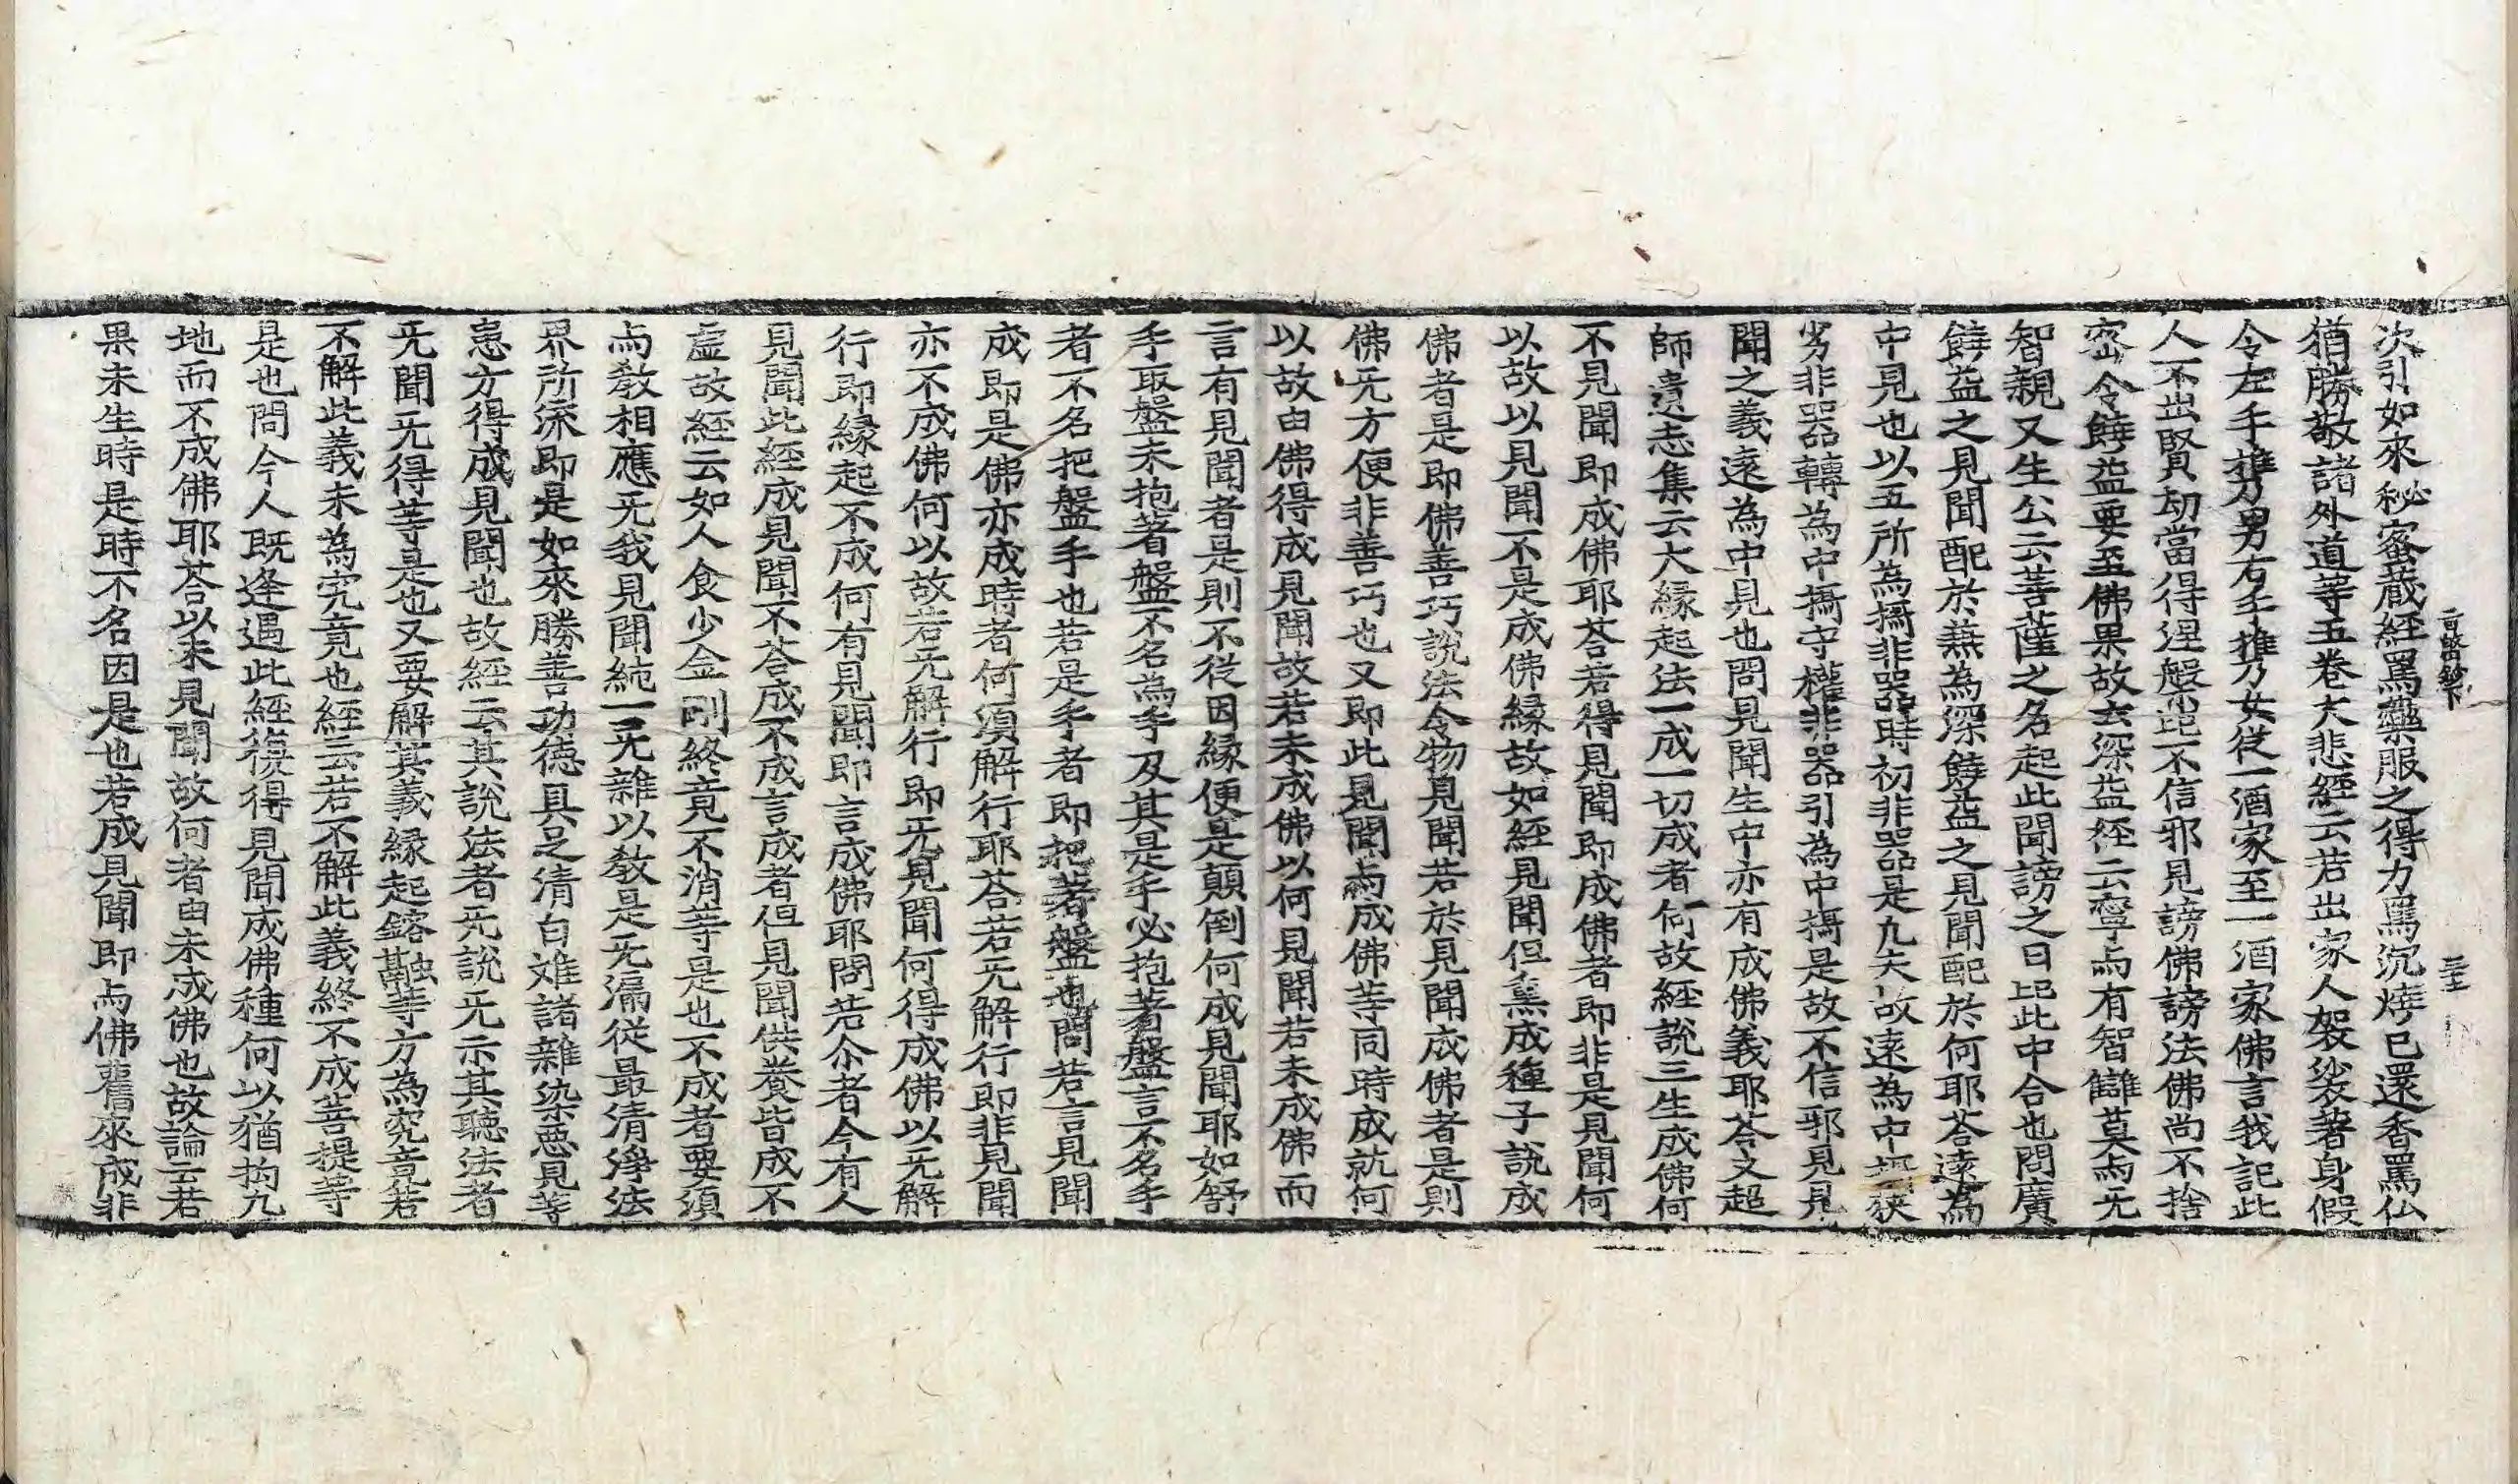 次引如來秘蜜蔵経罵藥服之得力罵沉燒已還香罵仏
猶勝敬諸外道等五卷大悲経云若出家人袈裟著身假
令左手携男右手携女従一酒家至一酒家佛言我記此
人不出賢劫當得涅盤此不信邪見謗佛謗法佛尚不捨
密令饒益要至佛果故云深益経云寧与有智讎莫与无
智親又生公云菩薩之名起此聞謗之日此中合也問廣
饒益之見聞配於蕪為深饒益之見聞配於何耶荅遠為
中見也以五所為揀非器時初非器是九夫故遠為中狹
劣非器轉為中揀守權非器引為中揀是故不信邪見見
聞之義遠為中見也問見聞生中亦有成佛義耶荅文超
師遺忘集云大縁起法一成一切成者何故経說三生成佛何
不見聞即成佛耶荅若得見聞即成佛者即非是見聞何
以故以見聞不是成佛縁故如経見聞但熏成種子說成
佛者是即佛善巧說法令物見聞若於見聞成佛者是則
佛无方便非善巧也又即此見聞与成佛等同時成就何
以故由佛得成見聞故若未成佛以何見聞若未成佛而
言有見聞者是則不従因縁便是顛倒何成見聞耶如舒
手取盤未抱著盤不名為手及其是手必抱著盤言不名手
者不名把盤手也若是手者即把著盤也問若言見聞
成即是佛亦成時者何須解行耶荅若无解行即非見聞
亦不成佛何以故若无解行即无見聞何得成佛以无解
行即縁起不成何有見聞即言成佛耶問若尒者今有人
見聞此経成見聞不荅成不成言成者但見聞供養皆成不
虛故経云如人食少金剛終竟不消等是也不成者要須
与教相應无我見聞純一无雜以教是无漏従最清淨法
界所流即是如來勝善功德具足清白難諸雜染惡見等
患方得成見聞也故経云其說法者无說无示其聽法者
无聞无得等是也又要解其義縁起鎔融等方為究竟若
不解此義未為究竟也経云若不解此義終不成菩提等
是也問今人既逢遇此経復得見聞成佛種何以猶拘九
地而不成佛耶荅以未見聞故何者由未成佛也故論云若
果未生時是時不名因是也若成見聞即与佛舊來成非